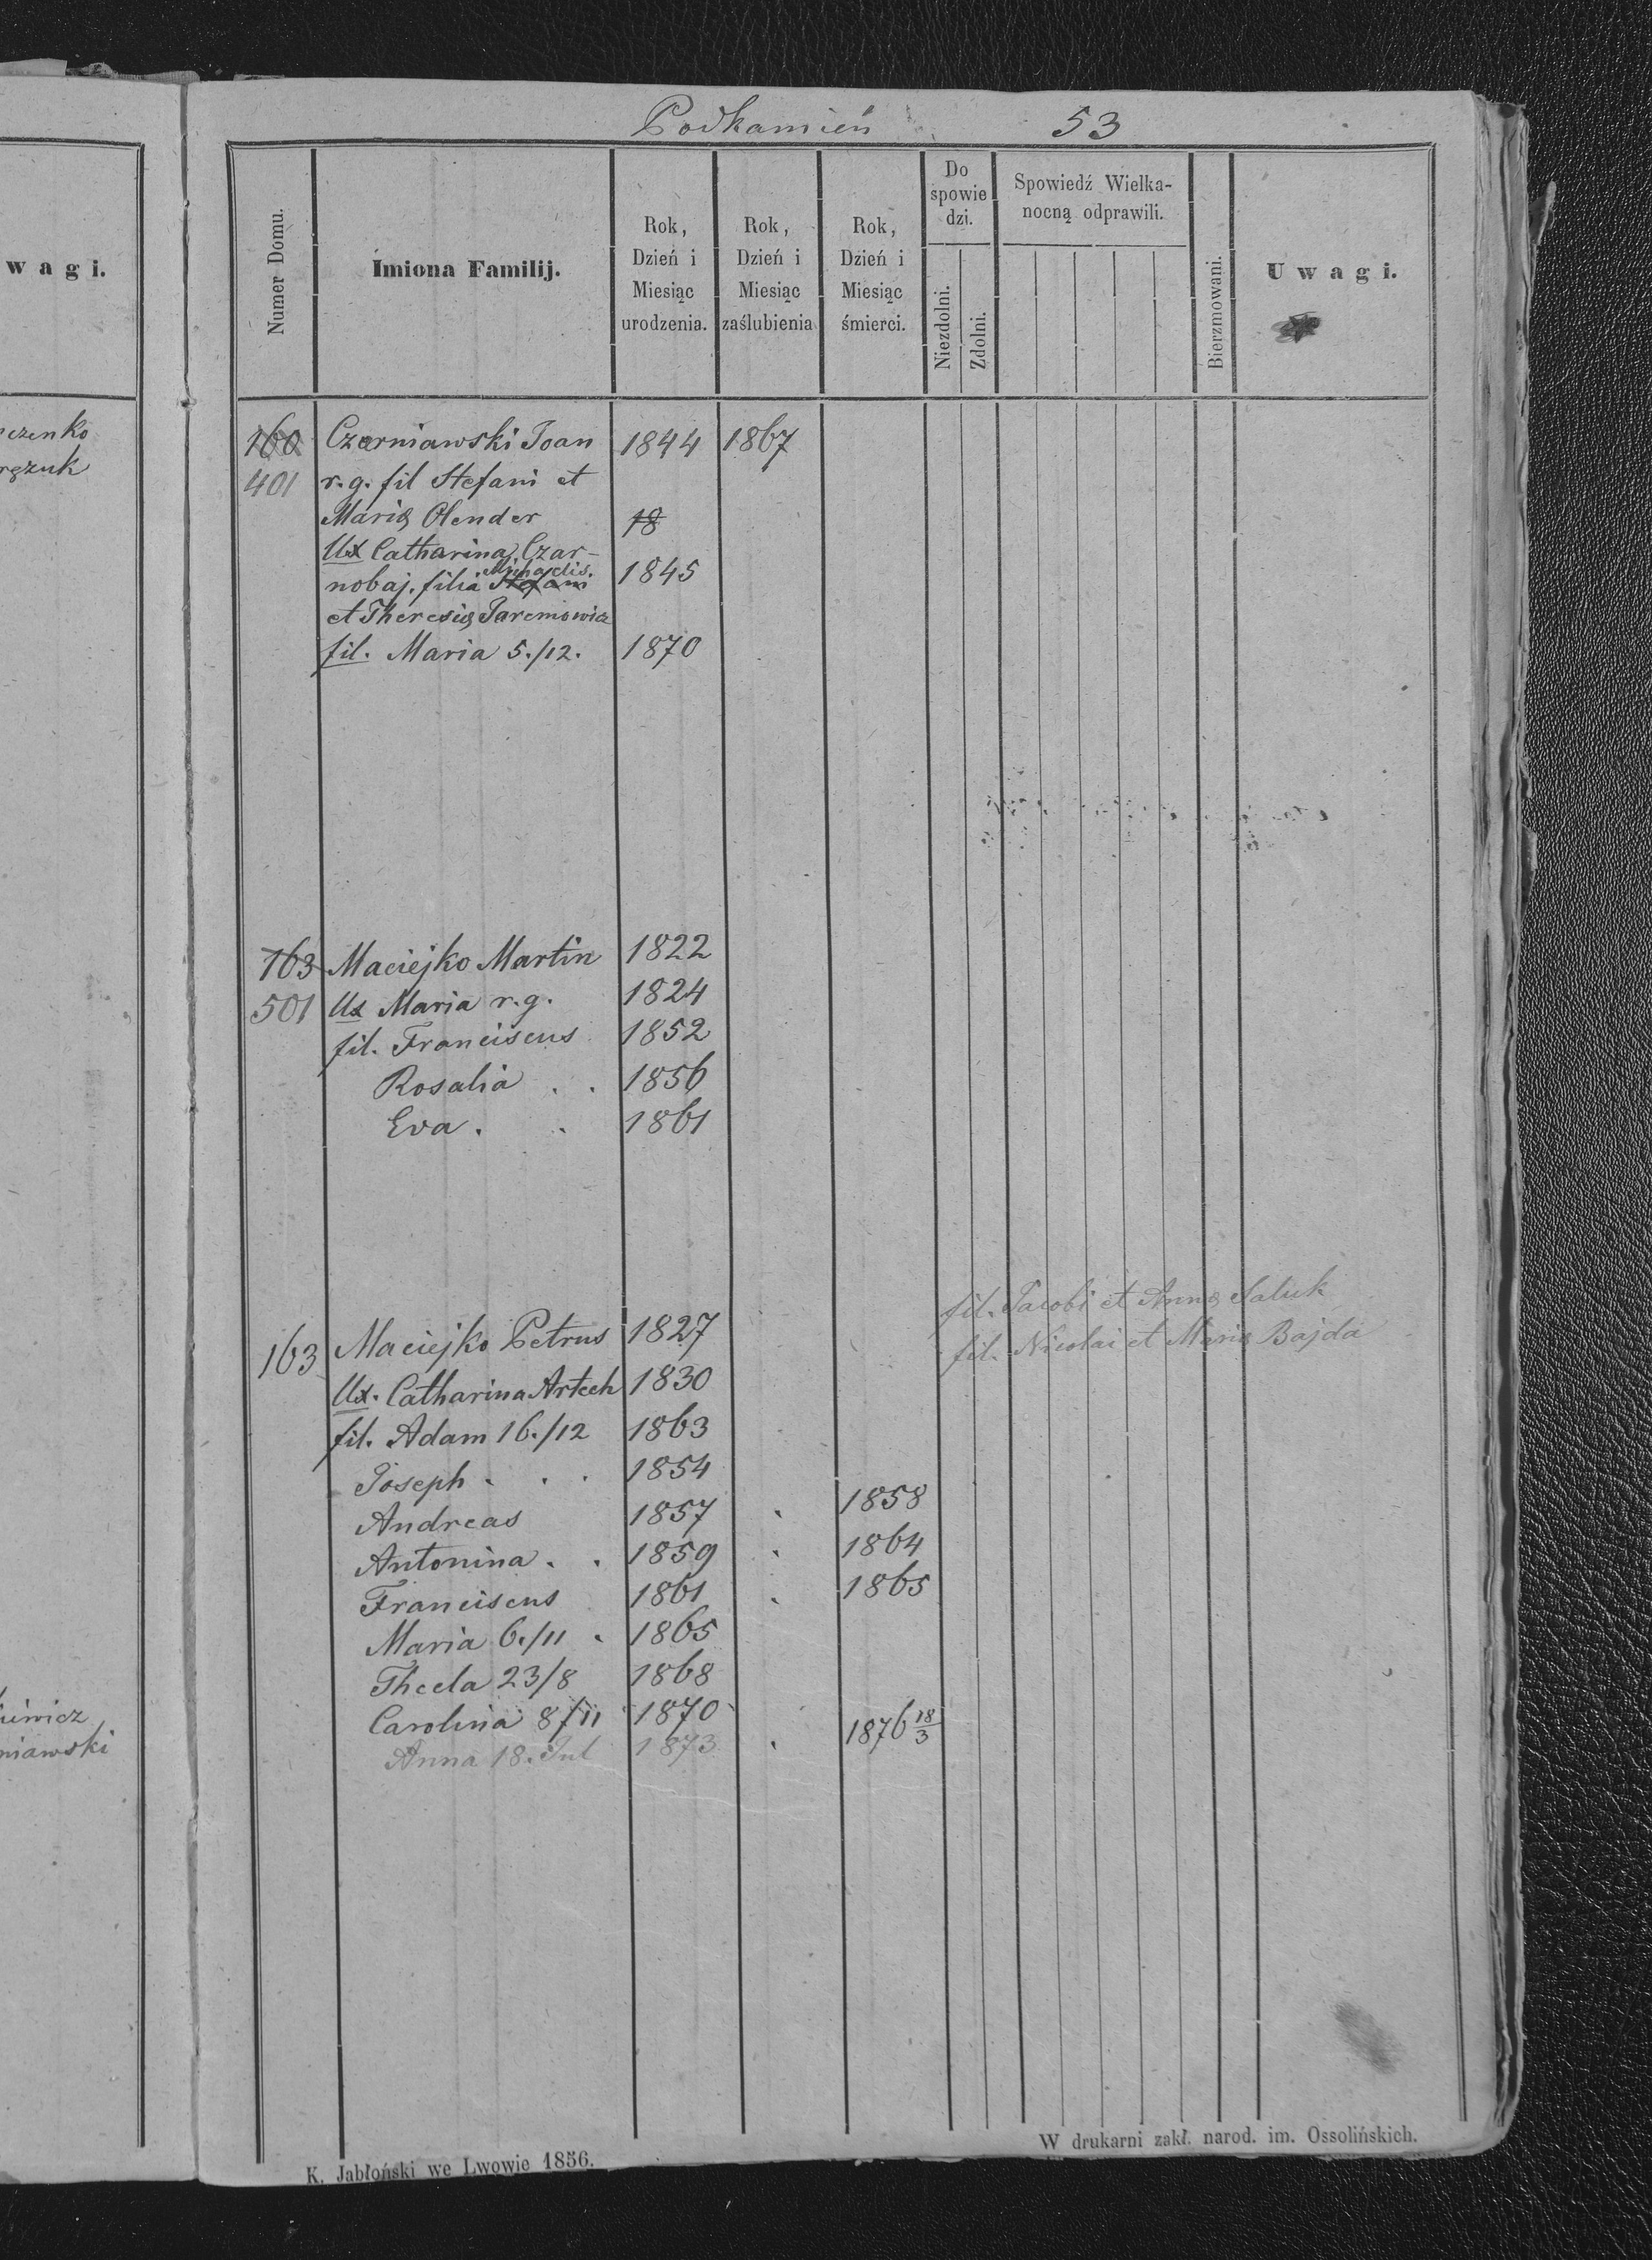 Podkamień 53
w a g i.
Numer Domu.
Imiona Familij.
Rok, Dzień i Miesiąc urodzenia.
Rok, Dzień i Miesiąc zaślubienia
Rok, Dzień i Miesiąc śmierci.
Do spowie dzi.
Niezdolni.
Zdolni.
Spowiedź Wielka-
nocną odprawili.
Bierzmowani.
U w a g i.
160 Czerniawski Joan 1844 1867
401 r. g. fil Stefani et
Mariæ Olender 18
Ux Catharina Czar-
Michaelis.
nobaj. filia Stefani 1845
et Theresiæ Jaremowicz
fil. Maria 5./12. 1870
163 Maciejko Martin 1822
501 Ux Maria r. g. 1824
fil. Franciscus 1852
Rosalia . . 1856
Eva . . 1861
163 Maciejko Petrus 1827 fil. Jacobi et Annæ Saluk
Ux. Catharina Artech 1830 fil. Nicolai et Mariæ Bajda
fil. Adam 16./12 1863
Joseph . . . 1854
Andreas 1857 . 1858
Antonina . . 1859 . 1864
Franciscus 1861 . 1865
Maria 6./11 . 1865
Thecla 23/8 1868
Carolina 8/11 1870
Anna 18. Jul 1873 . 1876 18/3
niawski
K. Jabłoński we Lwowie 1856.
W drukarni zakł. narod. im. Ossolińskich.